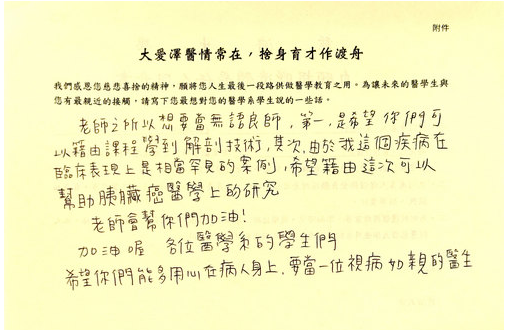 附件
大愛澤醫情常在，捨身育才作渡舟
我們感恩您慈悲喜捨的精神，願將您人生最後一段路供做醫學教育之用。為讓未來的醫學生與
您有最親近的接觸，請寫下您最想對您的醫學系學生說的一些話。
老師之所以想要當無語良師，第一，是希望你們可
以藉由課程學到解剖技術，其次，由於我這個疾病在
臨床表現上是相當罕見的案例，希望籍由這次可以
幫助胰臟癌醫學上的研究
老師會幫你們加油！
加油喔 各位醫學系的學生們
希望你們能多用心在病人身上，要當一位視病如親的醫生